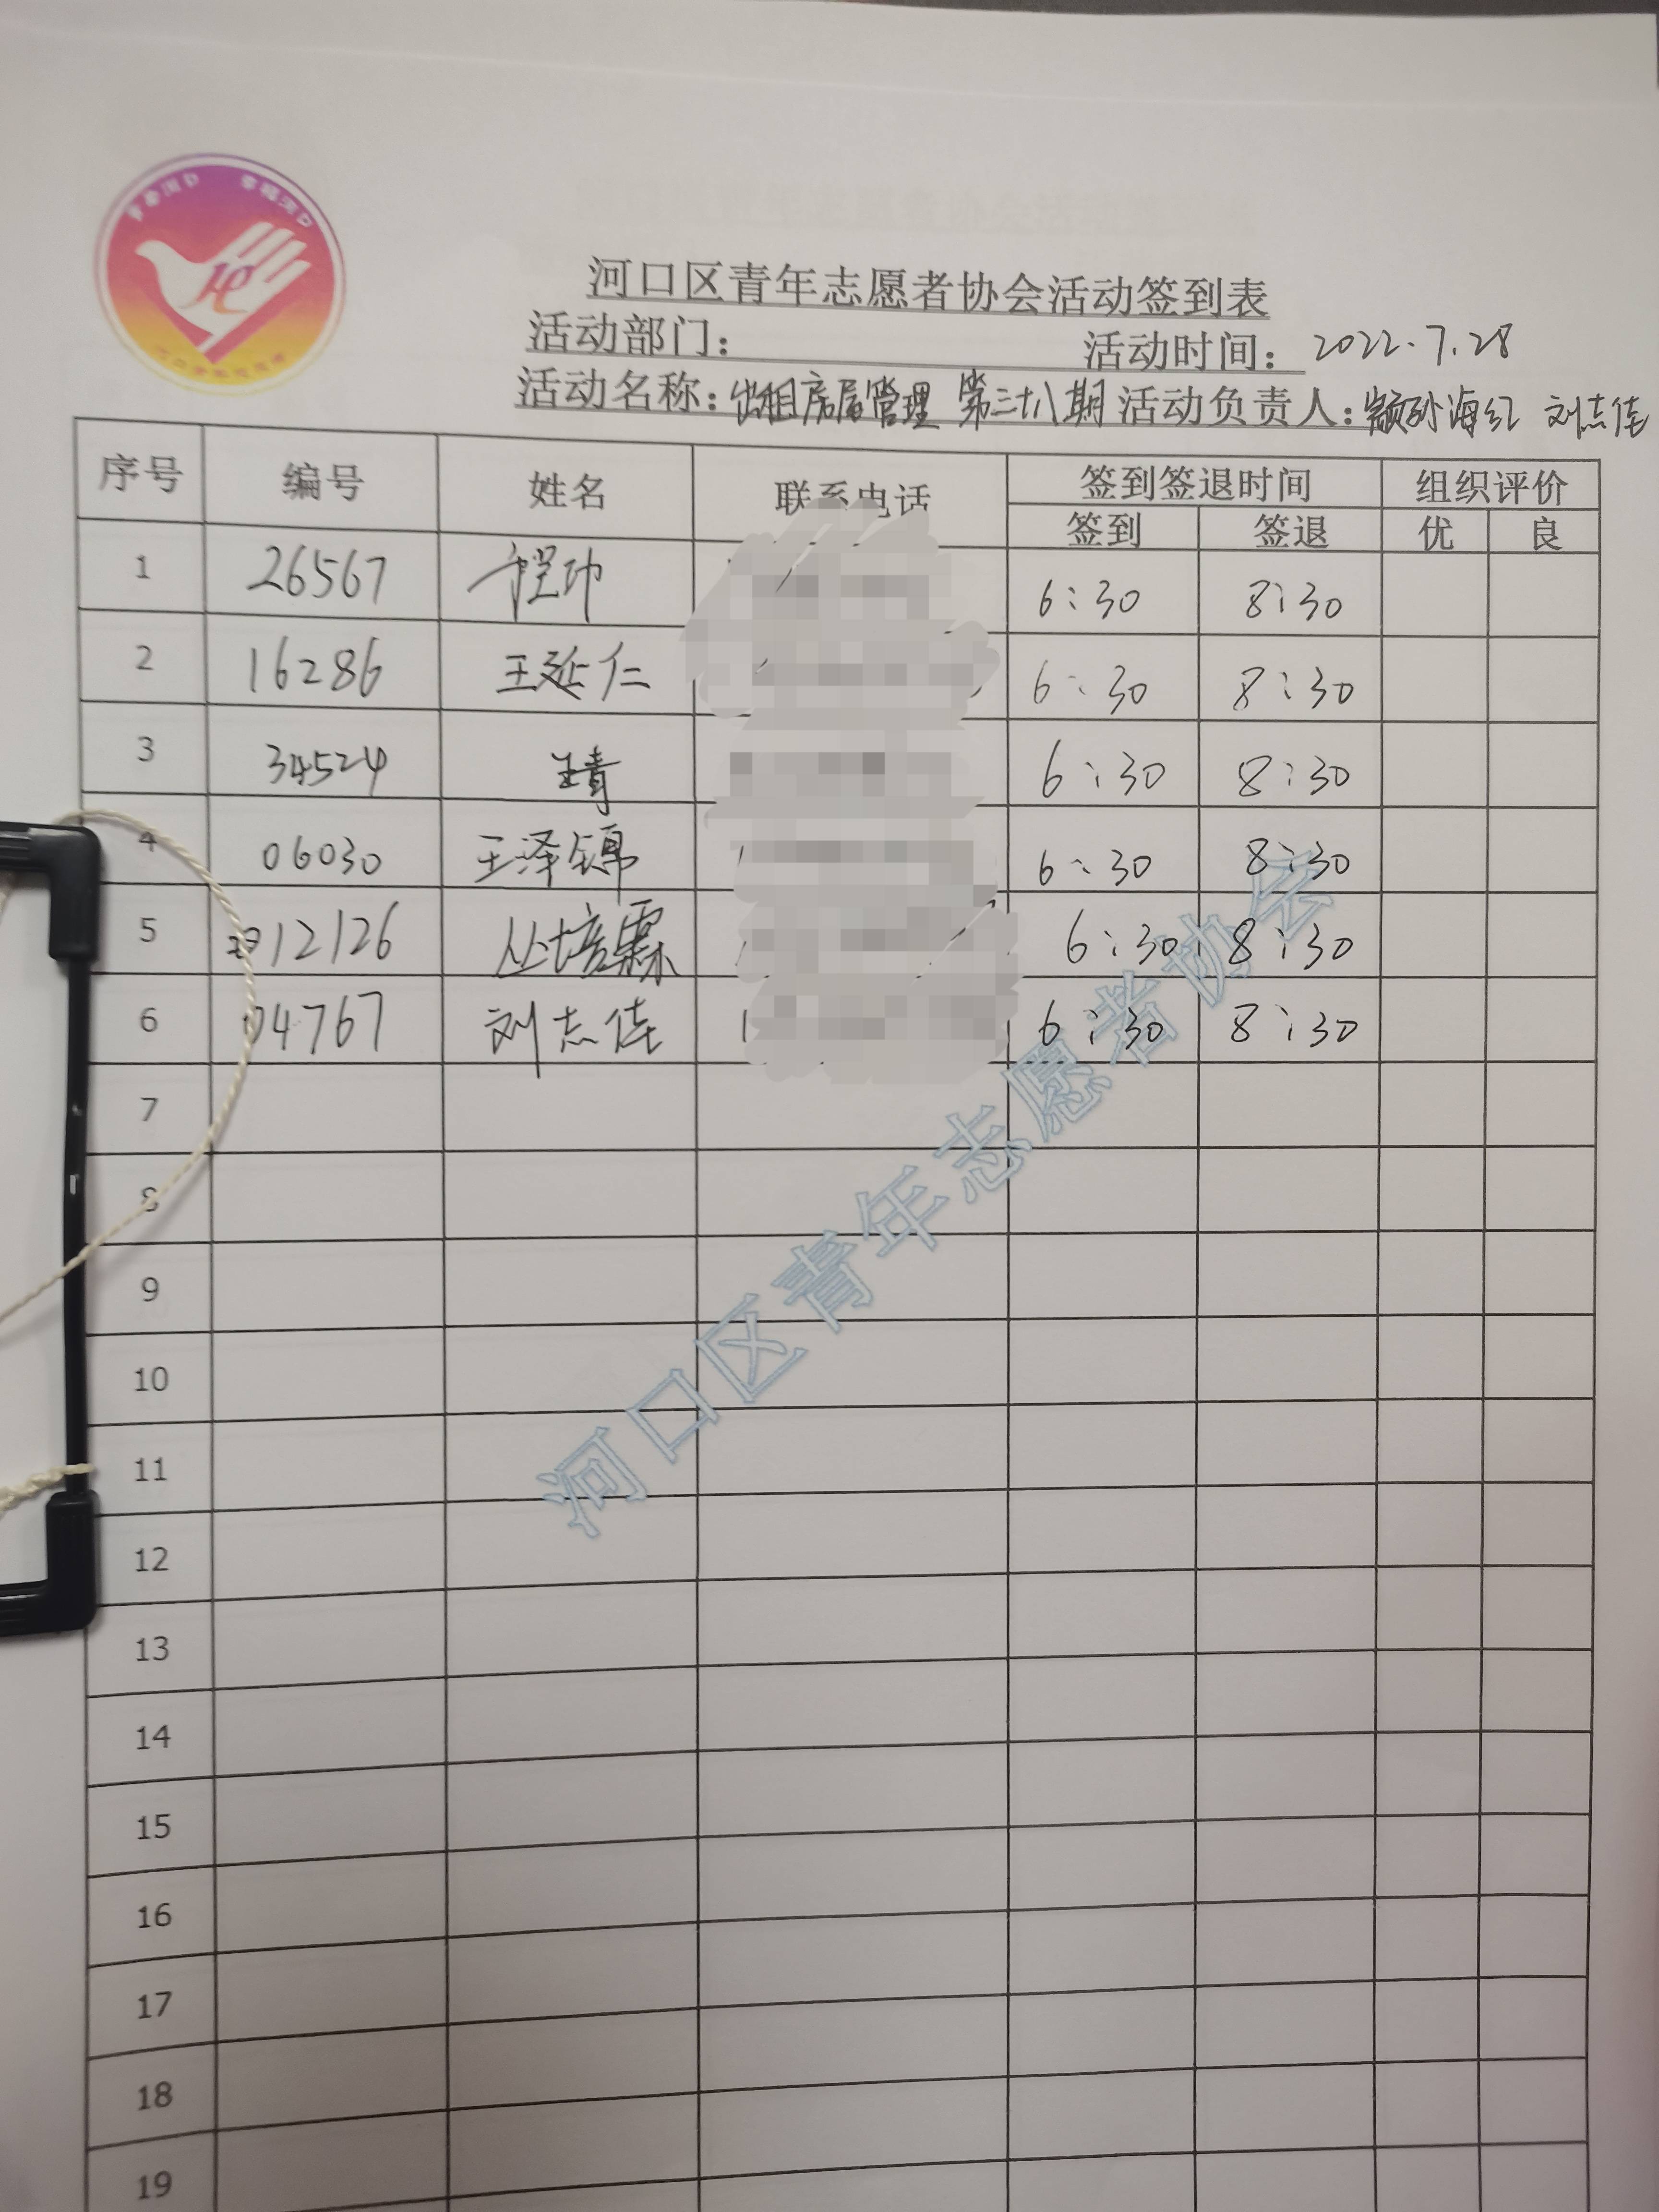 河口区青年志愿者协会活动签到表
活动部门： 活动时间：2022.7.28
活动名称：出租房屋管理 第三十八期 活动负责人：颛孙海红 刘志佳
序号 编号 姓名 联系电话 签到签退时间 组织评价
签到 签退 优 良
1 26567 程功 6:30 8:30
2 16286 王延仁 6:30 8:30
3 34524 王青 6:30 8:30
4 06030 王泽锦 6:30 8:30
5 12126 丛培霖 6:30 8:30
6 04767 刘志佳 6:30 8:30
7
8
9
10
11
12
13
14
15
16
17
18
19
河口区青年志愿者协会